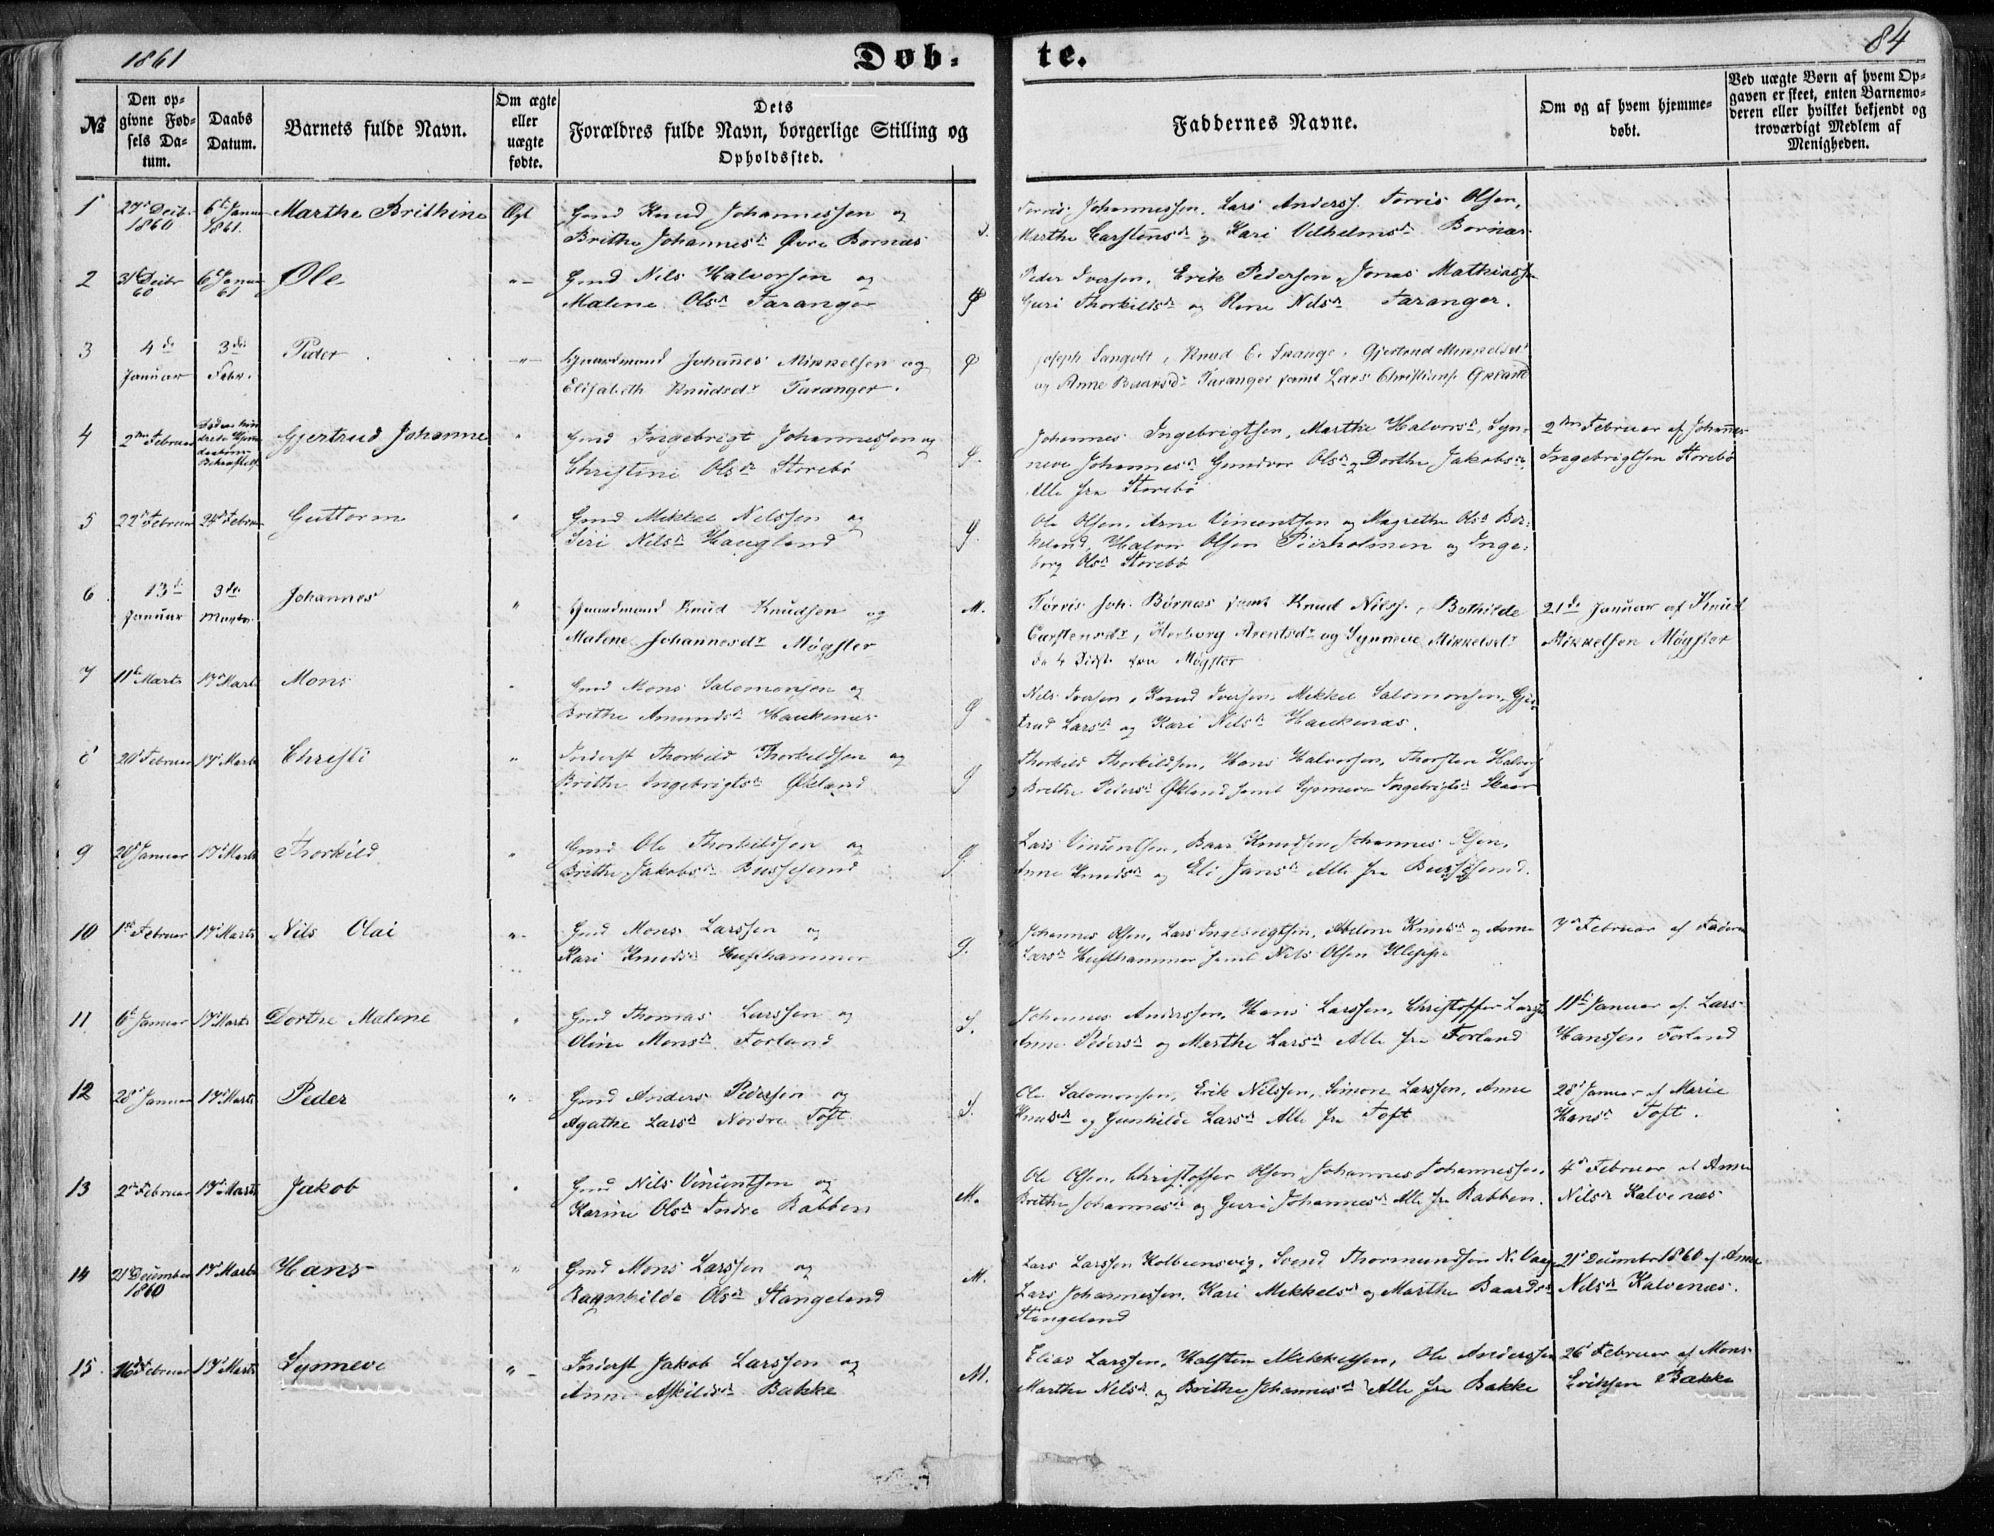 1861
Døb-
te.
84
№
Den op-
givne Fød-
sels Da-
tum.
Daabs
Datum.
Barnets fulde Navn.
Om ægte
eller
uægte
fødte.
Dets
Forældres fulde Navn, borgerlige Stilling og
Opholdssted.
Faddernes Navne.
Om og af hvem hjemme-
døbt.
Ved uægte Børn af hvem Op-
gaven er skeet, enten Barnemo-
deren eller hvilket bekjendt og
troværdigt Medlem af
Menigheden.
1
27de Decbr
1860
6te Januar
1861.
Marthe Brithine
Ægt
Gmd Knud Johannessen og
Brithe Johannesdr Øvre Bornæs
S.
Torris Johannessen, Lars Anderss. Torris Olsen,
Marthe Carstensdr og Kari Vilhelmsdr Bornæs
2
31 Decbr
60
6 Januar
61
Ole
"-
Gmd Nils Halvorsen og
Malene Olsdr Taranger
Peder Iversen, Erik Pedersen, Jonas Mathiass.
Guri Thorkildsdr og Olene Nilsdr Taranger.
3
4de
Januar
3die
Febr.
Peder
"
Gaardmand Johanes Mikkelsen og
Elisabeth Knudsdr Taranger.
Joseph Sangolt, Knud C. Skange, Gjertrud Mikkelsdr
og Anne Baarsdr Taranger samt Lars Christians. Økland
4
2den Februar
Gjertrud Johanne
"
Gmd Ingebrigt Johannessen og
Christine Olsdr Storebø
S.
Johannes Ingebrigtsen, Marthe Halvorsdr, Syn-
neve Johannesdr Gundvor Olsdr og Dorthe Jakobsdr,
Alle fra Storebø
2den Februar af Johannes
Ingebrigtsen Storebø
5
22de Februar
24de Februar
Guttorm
"
Gmd Mikkel Nilssen og
Siri Nilsdr Haugland
Ole Olsen, Arne Vincentsen og Magrethe Olsdr Ber-
keland, Halvor Olsen Pirholmen og Inge-
borg Olsdr Storebø
6
13de
Januar
3die
Marts.
Johannes
"
Gaardmand Knud Knudsen og
Malene Johannesdr Møgster
M.
Torris Joh. Børnæs samt Knud Nilss., Bothilde
Carstensdr, Herborg Arentsdr og Synneve Mikkelsdr
de 4 sidste fra Møgster
21de Januar af Knud
Mikkelsen Møgster
7
11te Marts
17de Marts
Mons
"
Gmd Mons Salomonsen og
Brithe Amundsdr Haukenæs
Nils Iversen, Knud Iversen, Mikkel Salomonsen, Gjer-
trud Larsdr og Kari Nilsdr Haukenæs.
8
20de Februar
17de Marts
Christi
"
Inderst Thorkild Thorkildsen og
Brithe Ingebrigtsdr Økland
Thorkild Thorkildsen, Hans Halvorsen, Thorsten Halvors.
Brethe Pedersdr Økland samt Synneve Ingebrigtsdr Skaar
9
20de Januar
17de Marts
Thorkild
"
Gmd Ole Thorkildsen og
Brithe Jakobsdr Bussesund
Lars Vincentsen, Baar Knudsen, Johannes Olsen,
Anne Knudsdr og Eli Jansdr Alle fra Bussesund.
10
1ste Februar
17de Marts
Nils Olai
"-
Gmd Mons Larssen og
Kari Knudsdr Hufthammer
Johannes Olsen, Lars Ingebrigtsen, Abelone Knudsdr og Anna
Larsdr Hufthammer samt Nils Olsen Kleppe
7de Februar af Faderen
11
6te Januar
17de Marts
Dorthe Malene
"
Gmd Thomas Larssen og
Oline Monsdr Forland
S.
Johannes Anderssen, Hans Larssen, Christoffer Larssen
Anne Pedersdr og Marthe Larsdr Alle fra Forland
11te Januar af Lars
Hanssen Forland
12
28de Januar
17de Marts
Peder
"
Gmd Anders Pedersen og
Agathe Larsdr Nordre Toft
S.
Ole Salomonsen, Erik Nilssen, Simon Larssen, Anne
Knudsdr og Gunhilde Larsdr Alle fra Toft
28de Januar af Marie
Hansdr Toft.
13
2den Februar
17de Marts
Jakob
"
Gmd Nils Vincentsen og
Karine Olsdr Indre Rabben
M.
Ole Olsen, Christoffer Olsen, Johannes Johannessen,
Brithe Johannesdr og Guri Johannesdr Alle fra Rabben.
4de Februar af Anne
Nilsdr Kalvenæs
14
21de December
1860
17de Marts
Hans
"
Gmd Mons Larssen og
Ragnhilde Olsdr Stangeland
M.
Lars Larssen Kolbeensvig, Svend Thormundsen N. Vaage
Lars Johannessen, Kari Mikkelsdr og Marthe Baardsdr
Stangeland
21de Decembr 1860 af Anne
Nilsdr Kalvenæs.
15
16de Februar
17de Marts
Synneve
"-
Inderst Jakob Larssen og
Anne Askildsdr Bakke
M.
Elias Larssen, Halsten Mikkelsen, Ole Anderssen
Marthe Nilsdr og Brithe Johannesdr Alle fra Bakke
26de Februar af Mons
Eriksen Bakke